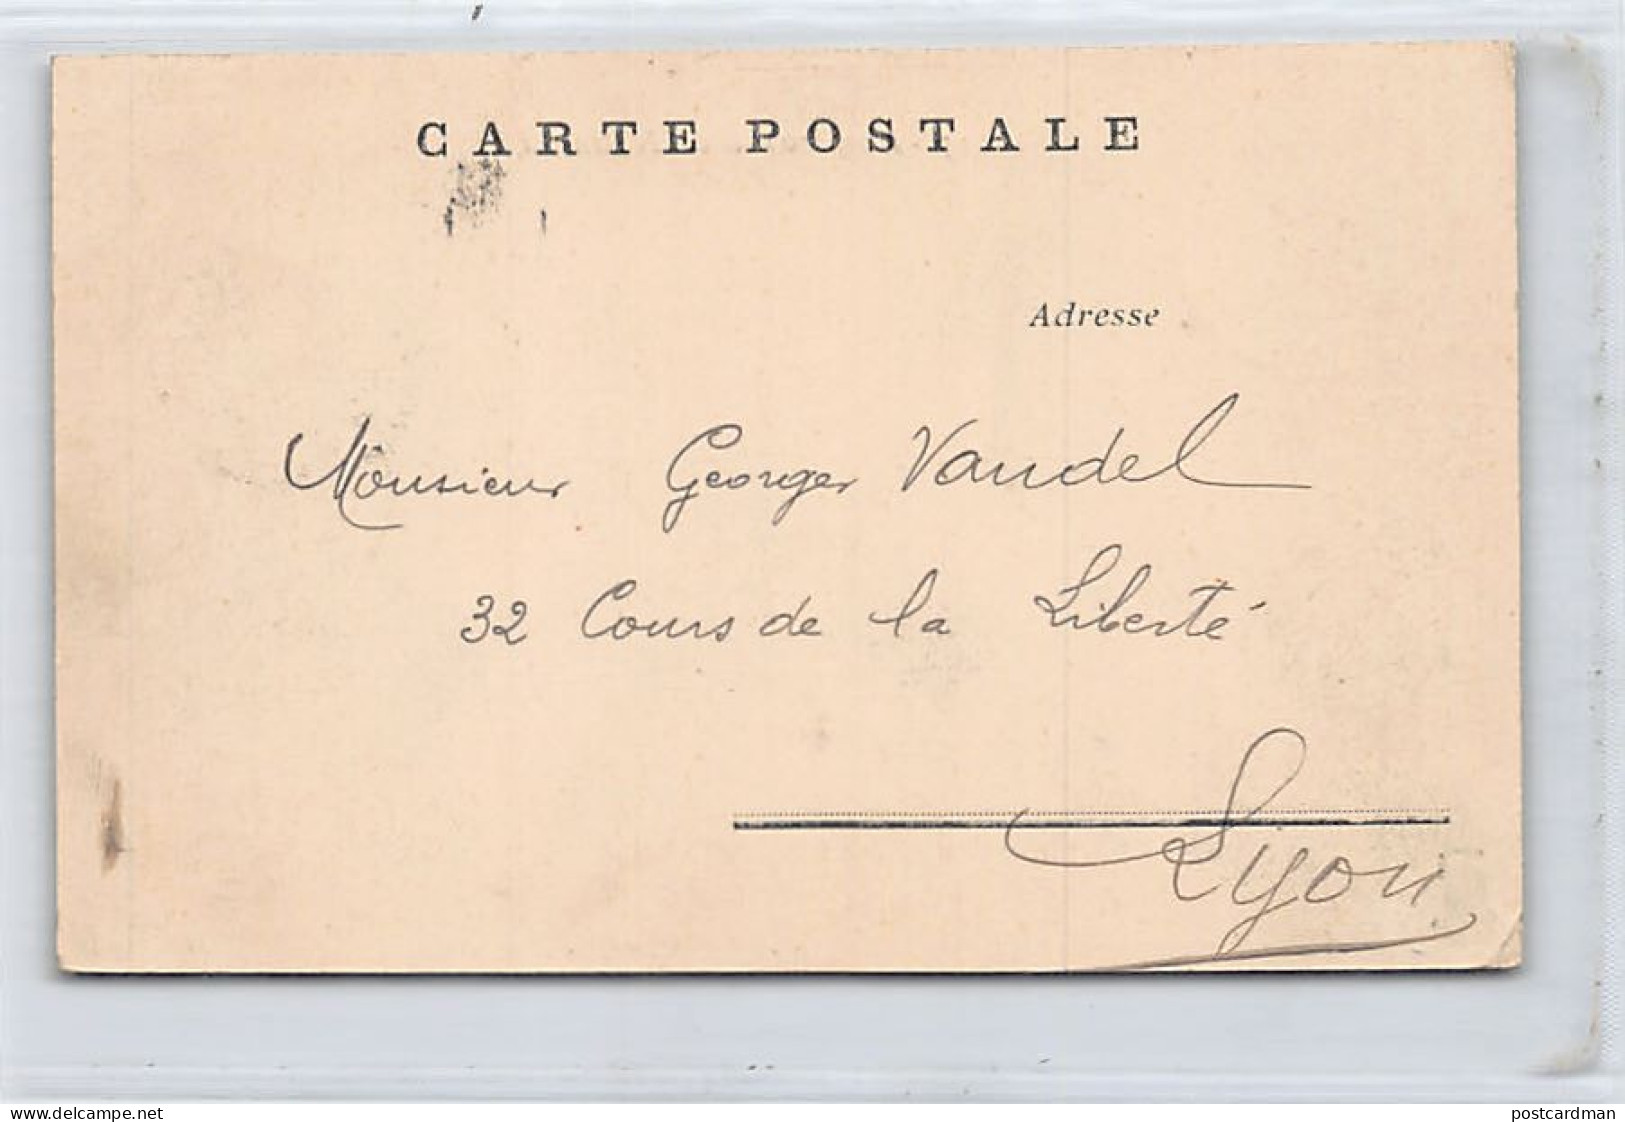 CARTE POSTALE
Adresse
Monsieur Georges Vandel
32 Cours de la Liberté
Lyon
www.delcampe.net
postcardman